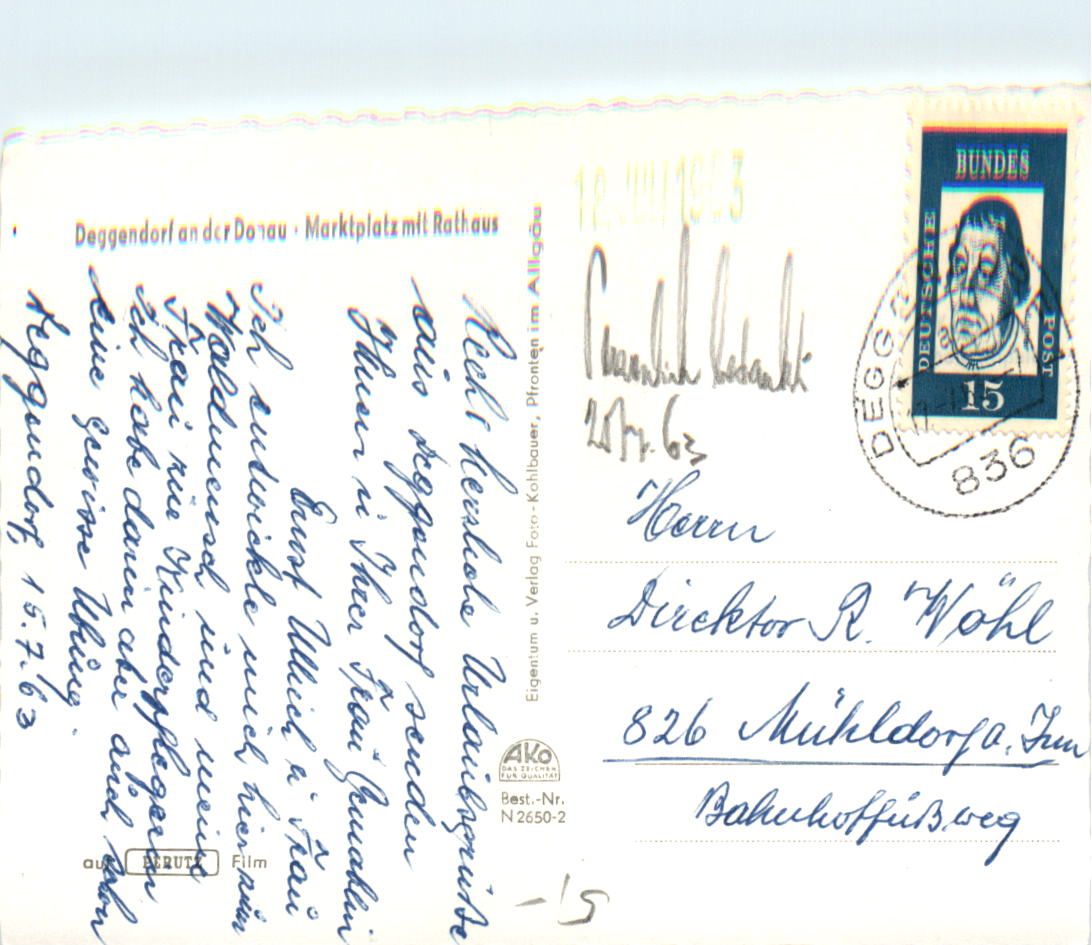 Deggendorf an der Donau · Marktplatz mit Rathaus
Recht herzliche Urlaubsgrüße
aus Deggendorf senden
Ihnen u. Ihrer Frau Gemahlin
Ernst Ullrich u. Frau
Ich entwickle mich hier zum
Waldmensch und meine
Frau zur Kinderpflegerin
Ich habe darin aber auch schon
eine gewisse Übung.
Deggendorf, 15.7.63
aus PERUTZ Film
Eigentum u. Verlag Foto-Kohlbauer, Pfronten im Allgäu
AKO
DAS ZEICHEN
FÜR QUALITÄT
Best.-Nr.
N 2650-2
18. JULI 1963
Persönlich bedankt
63
BUNDES
DEUTSCHE
POST
15
DEGG
836
Herrn
Direktor R. Wöhl
826 Mühldorf a. Inn
Bahnhoffußweg
-15